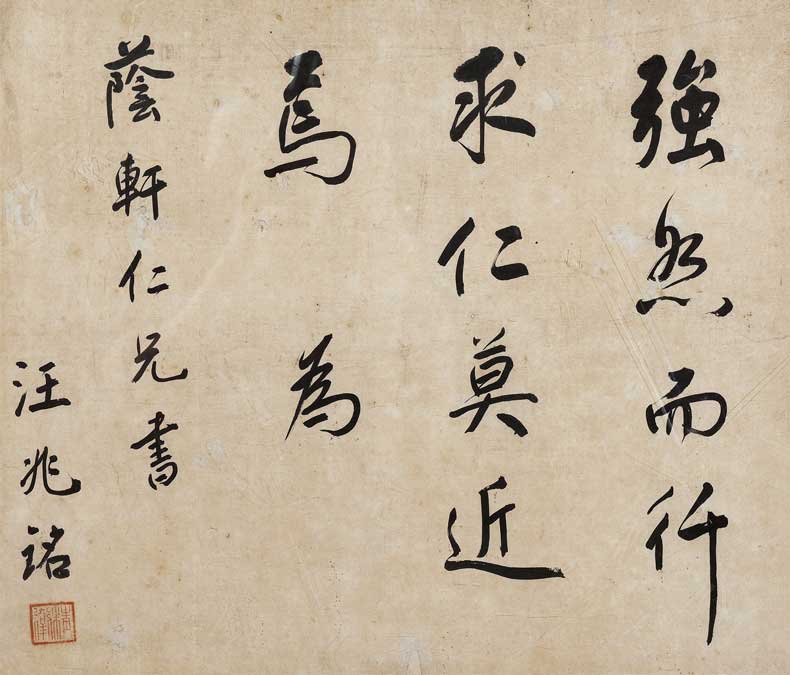 強恕而行
求仁莫近
焉 為
蔭軒仁兄書
汪兆銘
精衛